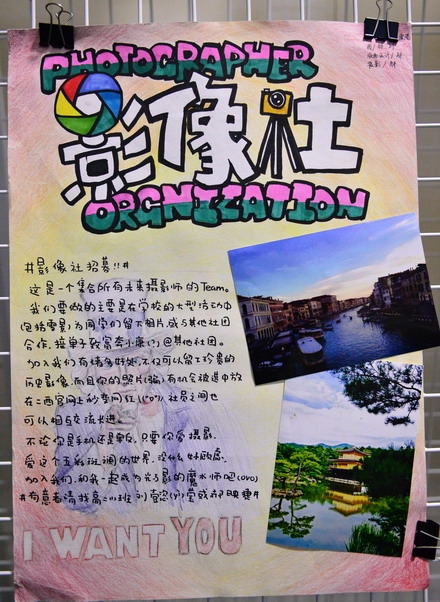 PHOTOGRAPHER
影像社
ORGNIZATION
#影像社招募!!#
这是一个集合所有未来摄影师的Team。
我们要做的主要是在学校的大型活动中
(包括零星)为同学们留下相片,或与其他社团
合作,接单
@其他社团。
加入我们有诸多好处,不仅可以留下珍贵的
历史影像,而且你的照片(骗)有机会被选中放
在二西官网上秒变网红(("o")),社员之间也
可以相互交流长进。
不论你是手机还是单反,只要你爱摄影,
爱这个五彩斑斓的世界,没什么好顾虑,
加入我们,和我一起成为光与影的魔术师吧(ovo)
#有意者请找高二
班
I WANT YOU